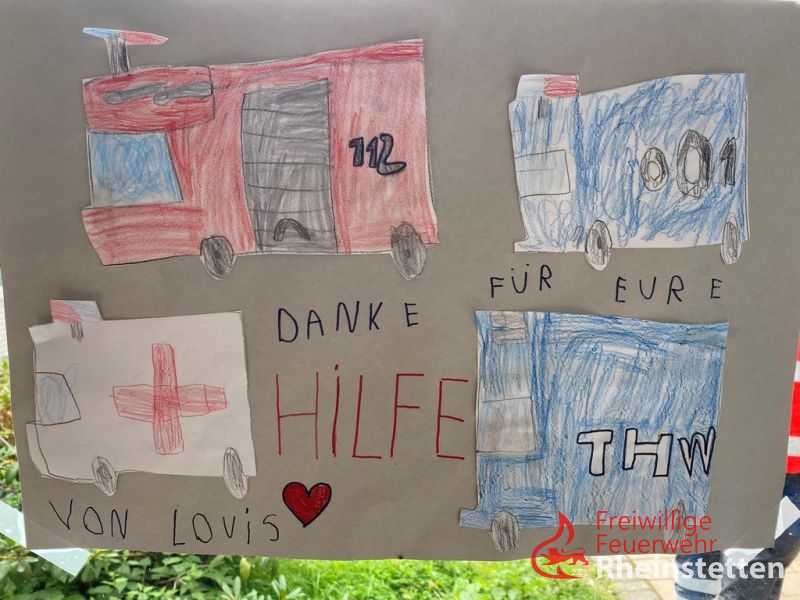 112
001
DANKE FÜR EURE
HiLFE
THW
VON LOUiS
Freiwillige
Feuerwehr
Rheinstetten